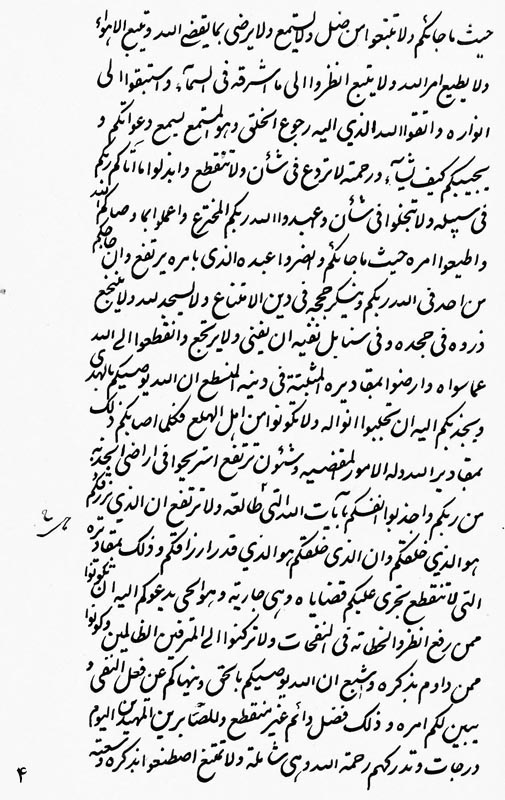 حيث ما جائكم ولا تتبعوا من ضل ولا يستمع ولا يرضى بما يقضى الله ويتبع الاهواء
ولا يطيع امر الله ولا يتبع انظروا الى ما اشرقه فى السماء واستبقوا الى
انواره واتقوا الله الذي اليه رجوع الخلق وهو المستمع يسمع دعواتكم و
يجيبكم كيف يشاء ورحمته لا تردع فى شأن ولا تنقطع وابذلوا ما آتاكم ربكم
فى سبيله ولا تبخلوا فى شأن وعبدوا الله ربكم المخترع واعملوا بما وصاكم الله
واطيعوا امره حيث ما جائكم وانصروا عبده الذى بامره يرتفع وان حاجكم
من احد فى الله ربكم وينكر حججه فى دين الامتناع ولا يسجد لله ولا ينجع
ذروه فى جحده وفى سنابل نفيه ان يفنى ولا يرجع وانقطعوا الى الله
عما سواه وارضوا بمقاديره المثبتة فى دينه ان الله يوصيكم بالهدى
ويجذبكم اليه ان تجلبوا انواله ولا تكونوا من اهل الهلع فكلما اصابكم ذلك
بمقادير الله وله الامور المقضيه وشئون ترتفع استريحوا فى اراضى الجذبه
من ربكم واجذبوا انفسكم بآيات الله التى طالعة ولا ترتفع ان الذى يرزقكم
هو الذي خلقكم وان الذى خلقكم هو الذي قدر ارزاقكم وذلك بمقاديره
التى لا تنقطع تجرى عليكم قضاياه وهى جارية وهو الحى يدعوكم اليه ان تكونوا
ممن رفع انظر فى النفحات ولا تركنوا الى المترفين الظالمين وكونوا
ممن داوم بذكره واشبع ان الله يوصيكم بالحق وينهاكم عن فعل النفى و
يبين لكم امره وذلك فضل دائم غير منقطع وللصابرين المهتدين اليوم
درجات وتدركهم رحمة الله وهى شاملة ولا تمتنع اصطنعوا بذكره وسعته
۴